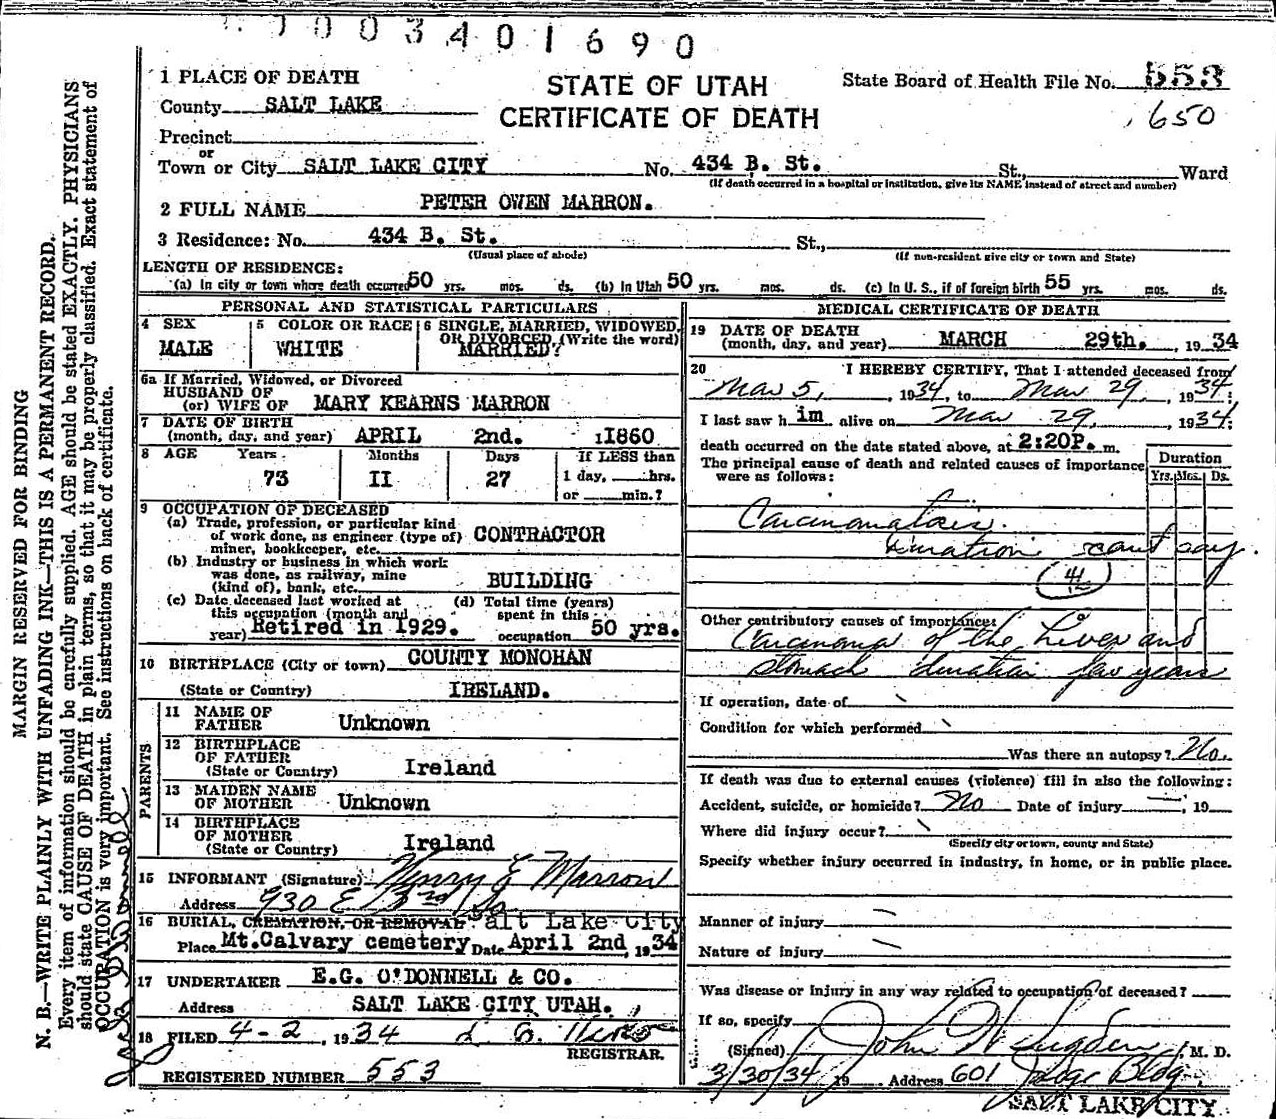 003401690
1 PLACE OF DEATH
STATE OF UTAH
CERTIFICATE OF DEATH
State Board of Health File No. 553
650
County SALT LAKE
Precinct
or
Town or City SALT LAKE CITY No. 434 B. St. St., Ward
(If death occurred in a hospital or institution, give its NAME instead of street and number)
2 FULL NAME PETER OWEN MARRON.
3 Residence: No. 434 B. St. St.,
(Usual place of abode) (If non-resident give city or town and State)
LENGTH OF RESIDENCE:
(a) In city or town where death occurred 50 yrs. mos. ds. (b) In Utah 50 yrs. mos. ds. (c) In U. S., if of foreign birth 55 yrs. mos. ds.
PERSONAL AND STATISTICAL PARTICULARS
4 SEX MALE
5 COLOR OR RACE WHITE
6 SINGLE, MARRIED, WIDOWED, OR DIVORCED (Write the word)
MARRIED?
6a If Married, Widowed, or Divorced
HUSBAND OF
(or) WIFE OF MARY KEARNS MARRON
7 DATE OF BIRTH
(month, day, and year) APRIL 2nd. 1860
8 AGE Years Months Days If LESS than
73 II 27 1 day, hrs.
or min.?
9 OCCUPATION OF DECEASED
(a) Trade, profession, or particular kind
of work done, as engineer (type of) CONTRACTOR
miner, bookkeeper, etc.
(b) Industry or business in which work
was done, as railway, mine
(kind of), bank, etc. BUILDING
(c) Date deceased last worked at
this occupation (month and
year) Retired in 1929.
(d) Total time (years)
spent in this
occupation 50 yrs.
10 BIRTHPLACE (City or town) COUNTY MONOHAN
(State or Country) IRELAND.
PARENTS
11 NAME OF
FATHER Unknown
12 BIRTHPLACE
OF FATHER
(State or Country) Ireland
13 MAIDEN NAME
OF MOTHER Unknown
14 BIRTHPLACE
OF MOTHER
(State or Country) Ireland
15 INFORMANT (Signature) Henry E Marron
Address 930 E 3rd So
16 BURIAL, CREMATION, OR REMOVAL Salt Lake City
Place Mt.Calvary cemetery Date April 2nd, 1934
17 UNDERTAKER E.G. O'DONNELL & CO.
Address SALT LAKE CITY UTAH.
18 FILED 4-2, 1934
REGISTRAR.
REGISTERED NUMBER 553
MEDICAL CERTIFICATE OF DEATH
19 DATE OF DEATH
(month, day, and year) MARCH 29th. , 1934
20 I HEREBY CERTIFY, That I attended deceased from
Mar 5, , 1934, to Mar 29, , 1934;
I last saw h im alive on Mar 29, , 1934;
death occurred on the date stated above, at 2:20P. m.
The principal cause of death and related causes of importance
were as follows:
Duration
Yrs. Mos. Ds.
Carcinomatosis.
duration cant say.
Other contributory causes of importance:
Carcinoma of the Liver and
stomach duration few years
If operation, date of
Condition for which performed
Was there an autopsy? No.
If death was due to external causes (violence) fill in also the following:
Accident, suicide, or homicide? No Date of injury , 19
Where did injury occur?
(Specify city or town, county and State)
Specify whether injury occurred in industry, in home, or in public place.
Manner of injury
Nature of injury
Was disease or injury in any way related to occupation of deceased?
If so, specify
(Signed) John , M. D.
3/30/34 19 Address 601 Judge Bldg
SALT LAKE CITY
MARGIN RESERVED FOR BINDING
N. B.—WRITE PLAINLY WITH UNFADING INK—THIS IS A PERMANENT RECORD.
Every item of information should be carefully supplied. AGE should be stated EXACTLY. PHYSICIANS
should state CAUSE OF DEATH in plain terms, so that it may be properly classified. Exact statement of
OCCUPATION is very important. See instructions on back of certificate.